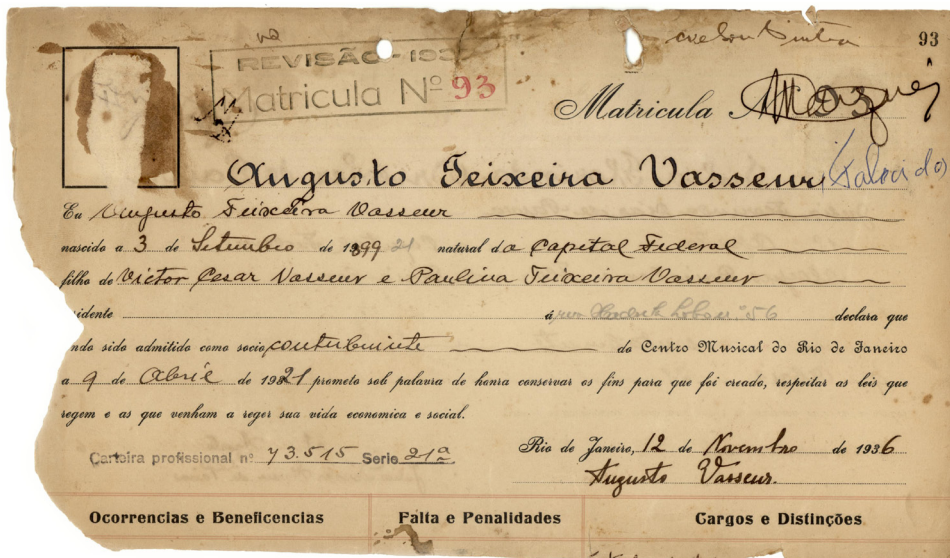 93
REVISÃO-193
Matricula Nº 93
Matricula Nº 93
Augusto Teixeira Vasseur (Falecido)
Eu Augusto Teixeira Vasseur
nascido a 3 de Setembro de 1899 21 natural da Capital Federal
filho de Victor Cesar Vasseur e Paulina Teixeira Vasseur
sidente á rua Haddock Lobo n.º 56 declara que
ndo sido admitido como socio contribuinte do Centro Musical do Rio de Janeiro
a 9 de Abril de 1921 prometo sob palavra de honra conservar os fins para que foi creado, respeitar as leis que
regem e as que venham a reger sua vida economica e social.
Rio de Janeiro, 12 de Novembro de 1936
Carteira profissional nº 73.515 Serie 21ª
Augusto Vasseur.
Ocorrencias e Beneficencias Falta e Penalidades Cargos e Distinções